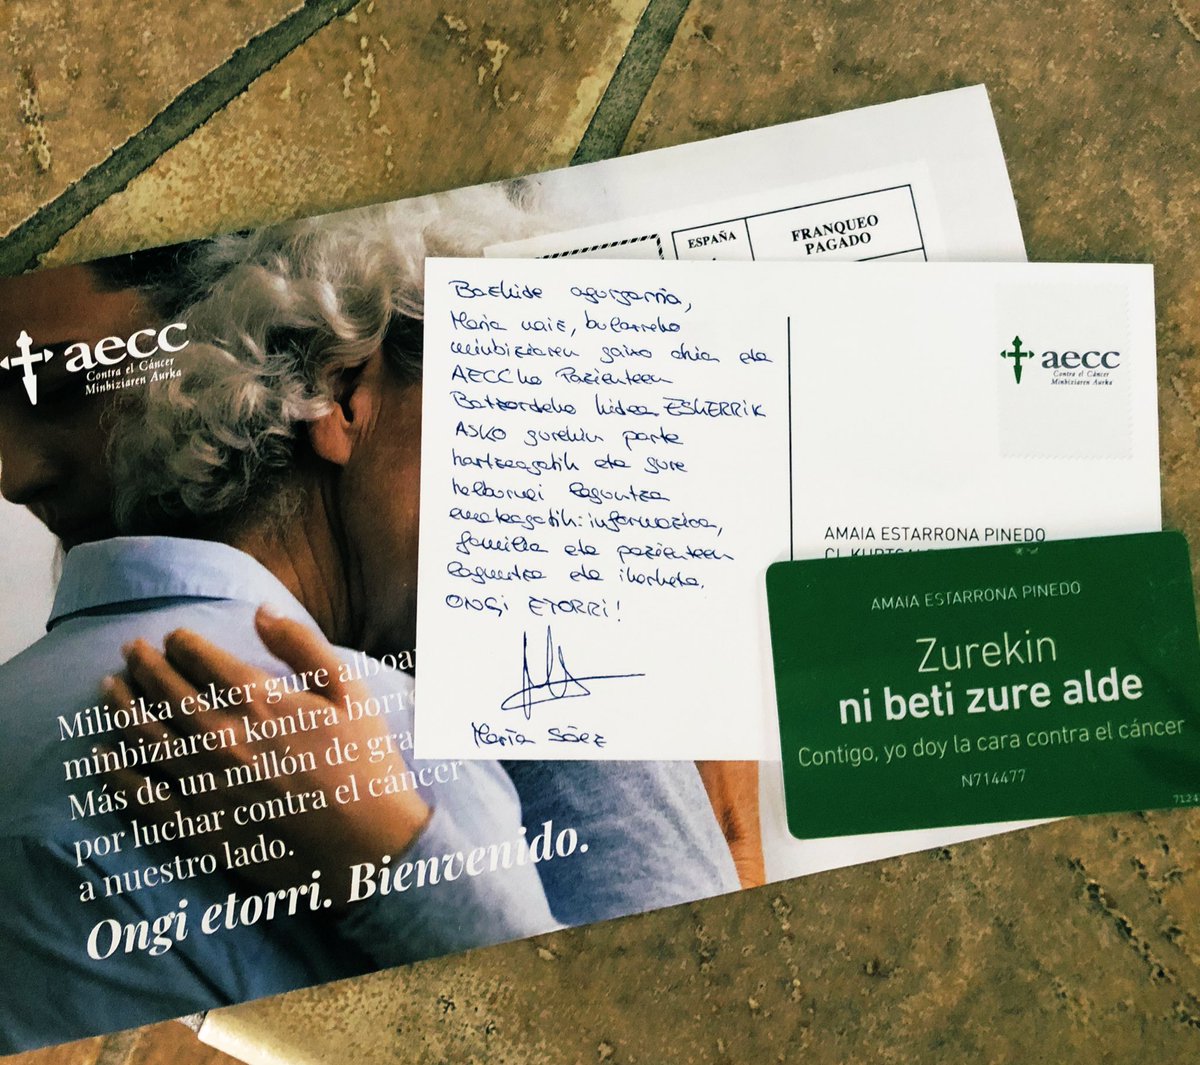 aecc
Contra el Cáncer
Minbiziaren Aurka
Milioika esker gure alboa
minbiziaren kontra borro
Más de un millón de gra
por luchar contra el cáncer
a nuestro lado.
Ongi etorri. Bienvenido.
ESPAÑA
FRANQUEO
PAGADO
Bazkide agurgarria,
Maria naiz, bularreko
minbiziaren gaixo ohia eta
AECCko Pazienteen
Batzordeko kidea. ESKERRIK
ASKO gurekin parte
hartzeagatik eta gure
helburuei laguntza
emateagatik: informazioa,
familia eta pazienteen
laguntza eta ikerketa.
ONGI ETORRI!
María Sáez
aecc
Contra el Cáncer
Minbiziaren Aurka
AMAIA ESTARRONA PINEDO
AMAIA ESTARRONA PINEDO
Zurekin
ni beti zure alde
Contigo, yo doy la cara contra el cáncer
N714477
7124